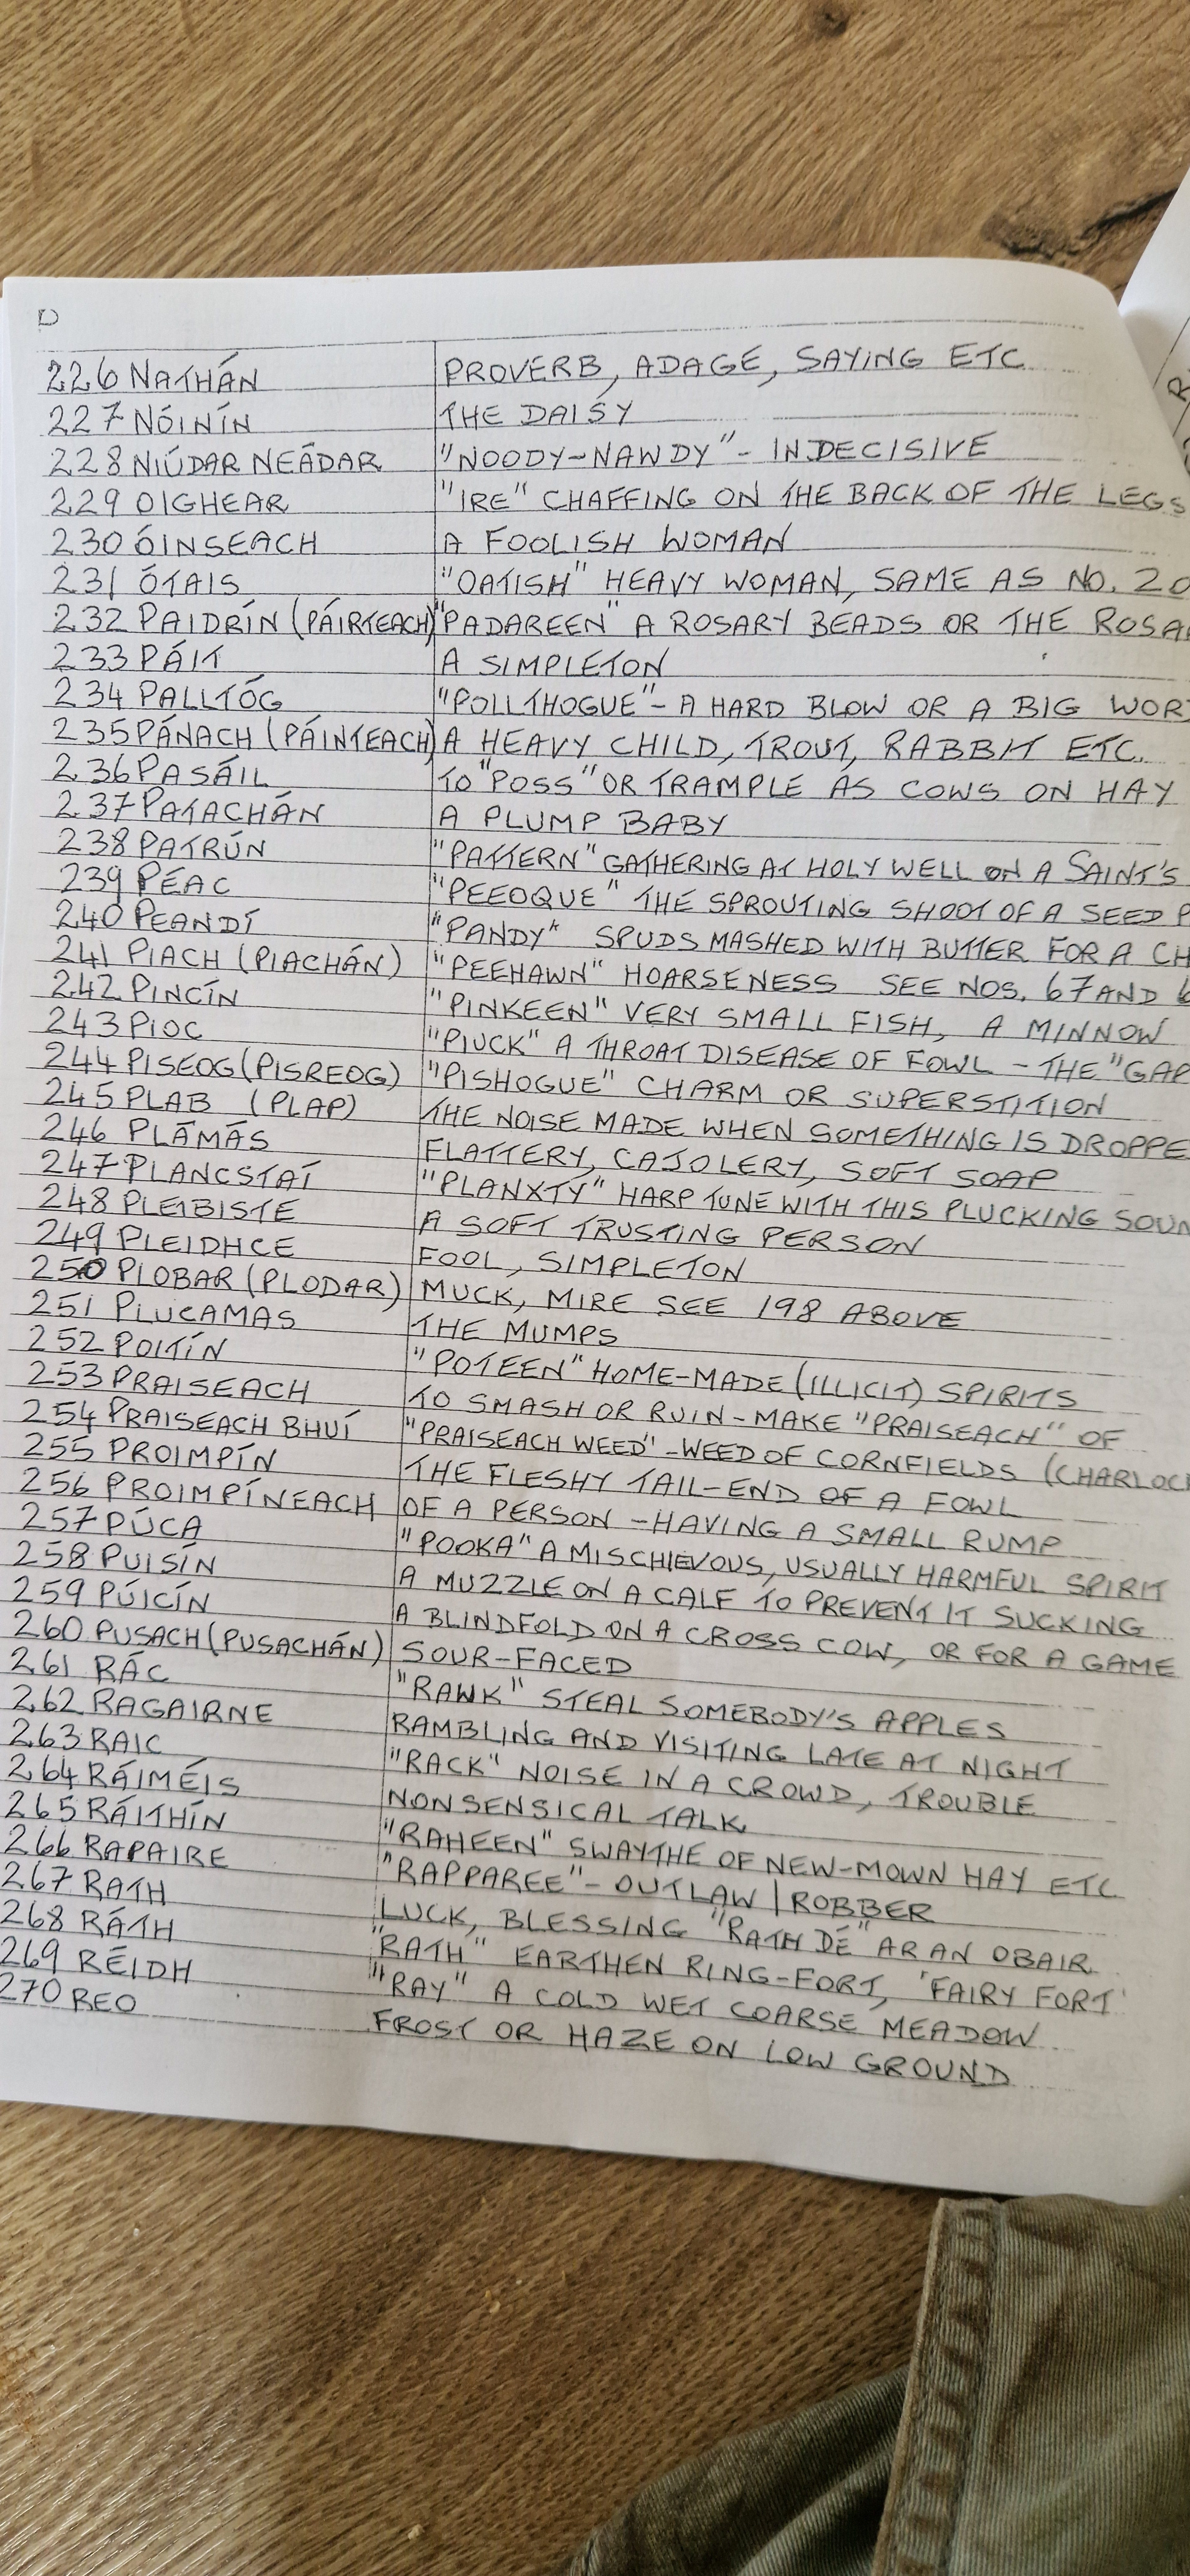 D
226 NATHÁN PROVERB, ADAGE, SAYING ETC
227 NÓINÍN THE DAISY
228 NIÚDAR NEÁDAR "NOODY-NAWDY" - INDECISIVE
229 OIGHEAR "IRE" CHAFFING ON THE BACK OF THE LEGS
230 ÓINSEACH A FOOLISH WOMAN
231 ÓTAIS "OATISH" HEAVY WOMAN, SAME AS NO. 20
232 PAIDRÍN (PÁIRTEACH) "PADAREEN" A ROSARY BEADS OR THE ROSA
233 PÁIT A SIMPLETON
234 PALLTÓG "POLLTHOGUE" - A HARD BLOW OR A BIG WOR
235 PÁNACH (PÁINTEACH) A HEAVY CHILD, TROUT, RABBIT ETC.
236 PASÁIL TO "POSS" OR TRAMPLE AS COWS ON HAY
237 PATACHÁN A PLUMP BABY
238 PATRÚN "PATTERN" GATHERING AT HOLY WELL ON A SAINT'S
239 PÉAC "PEEOQUE" THE SPROUTING SHOOT OF A SEED P
240 PEANDÍ "PANDY" SPUDS MASHED WITH BUTTER FOR A CH
241 PIACH (PIACHÁN) "PEEHAWN" HOARSENESS SEE NOS. 67 AND 6
242 PINCÍN "PINKEEN" VERY SMALL FISH, A MINNOW
243 PIOC "PIUCK" A THROAT DISEASE OF FOWL - THE "GAP
244 PISEOG (PISREOG) "PISHOGUE" CHARM OR SUPERSTITION
245 PLAB (PLAP) THE NOISE MADE WHEN SOMETHING IS DROPPE
246 PLÁMÁS FLATTERY, CAJOLERY, SOFT SOAP
247 PLANCSTAÍ "PLANXTY" HARP TUNE WITH THIS PLUCKING SOUN
248 PLEIBISTE A SOFT TRUSTING PERSON
249 PLEIDHCE FOOL, SIMPLETON
250 PLOBAR (PLODAR) MUCK, MIRE SEE 198 ABOVE
251 PLUCAMAS THE MUMPS
252 POITÍN "POTEEN" HOME-MADE (ILLICIT) SPIRITS
253 PRAISEACH TO SMASH OR RUIN - MAKE "PRAISEACH" OF
254 PRAISEACH BHUÍ "PRAISEACH WEED" - WEED OF CORNFIELDS (CHARLOC
255 PROIMPÍN THE FLESHY TAIL-END OF A FOWL
256 PROIMPÍNEACH OF A PERSON - HAVING A SMALL RUMP
257 PÚCA "POOKA" A MISCHIEVOUS, USUALLY HARMFUL SPIRIT
258 PUISÍN A MUZZLE ON A CALF TO PREVENT IT SUCKING
259 PÚICÍN A BLINDFOLD ON A CROSS COW, OR FOR A GAME
260 PUSACH (PUSACHÁN) SOUR-FACED
261 RÁC "RAWK" STEAL SOMEBODY'S APPLES
262 RAGAIRNE RAMBLING AND VISITING LATE AT NIGHT
263 RAIC "RACK" NOISE IN A CROWD, TROUBLE
264 RÁIMÉIS NONSENSICAL TALK
265 RÁITHÍN "RAHEEN" SWAYTHE OF NEW-MOWN HAY ETC
266 RAPAIRE "RAPPAREE" - OUTLAW / ROBBER
267 RATH LUCK, BLESSING "RATH DÉ" AR AN OBAIR
268 RÁTH "RATH" EARTHEN RING-FORT, 'FAIRY FORT'
269 RÉIDH "RAY" A COLD WET COARSE MEADOW
270 REO FROST OR HAZE ON LOW GROUND